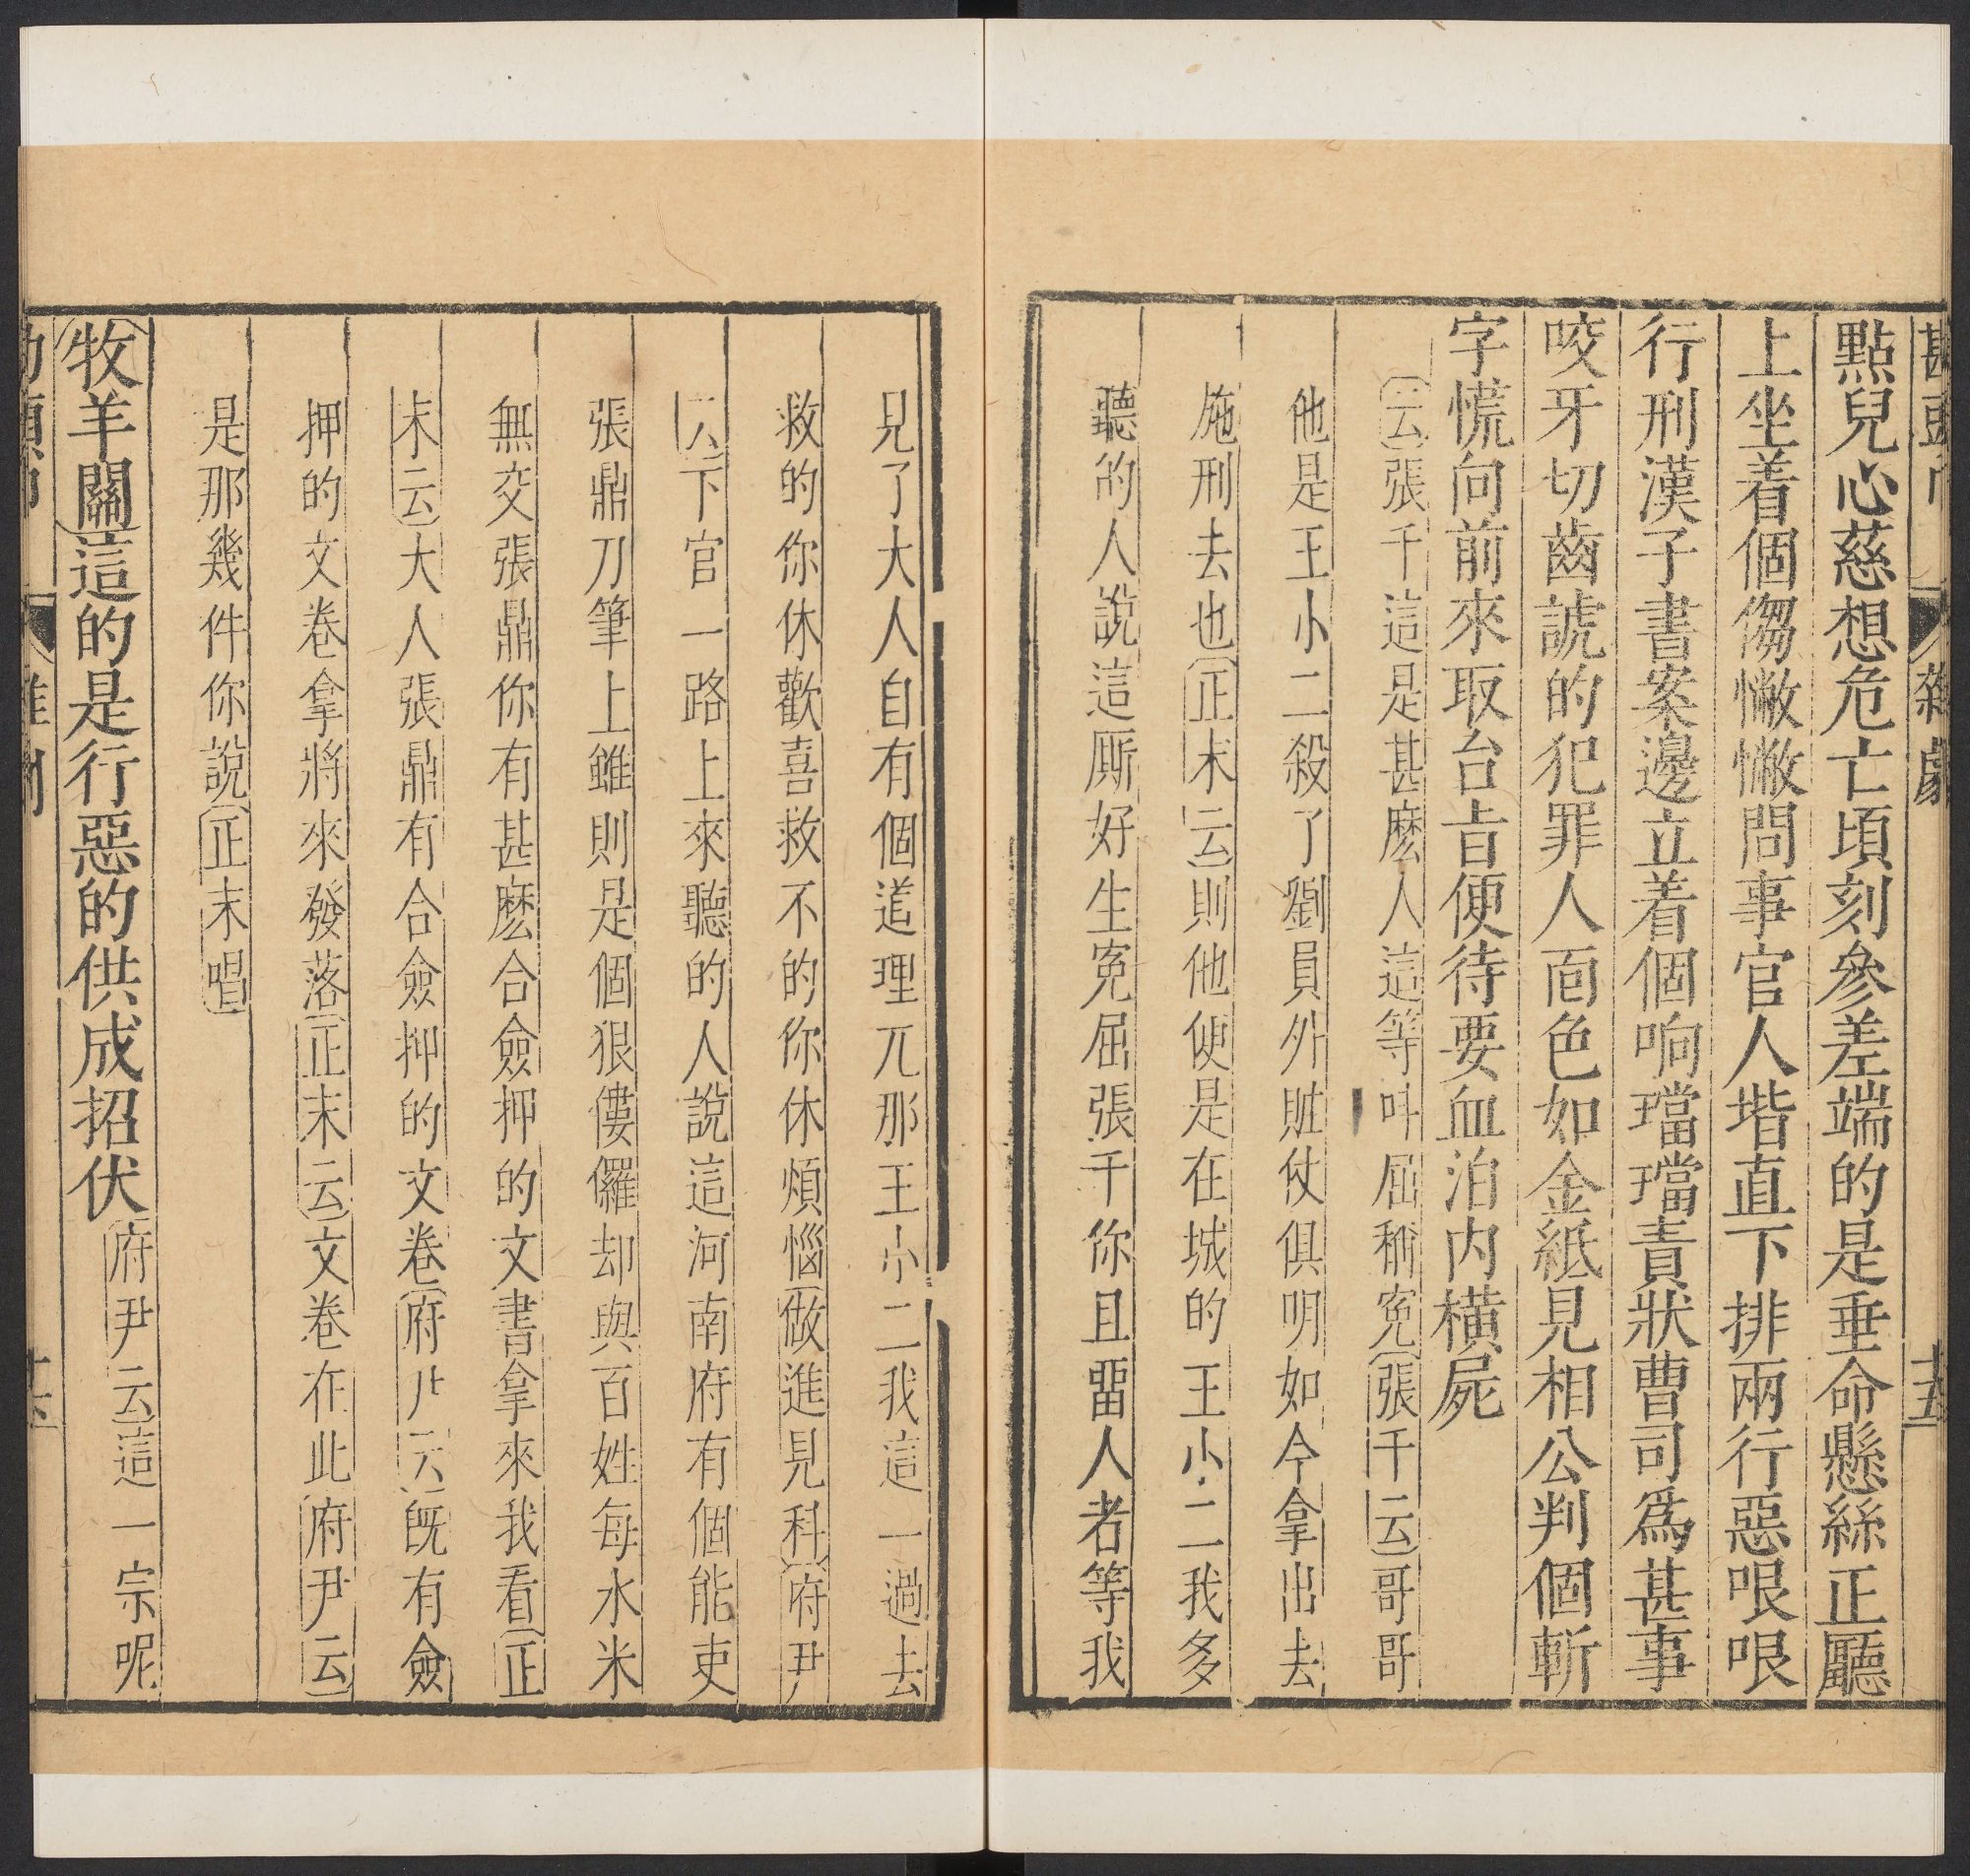 勘頭巾 雜劇 十五
點兒心慈想危亡頃刻參差端的是垂命懸絲正廳
上坐着個㑳懒懒問事官人堦直下排兩行惡哏哏
行刑漢子書案邊立着個响璫璫責狀曹司爲甚事
咬牙切齒諕的犯罪人面色如金紙見相公判個斬
字慌向前來取台旨便待要血泊內橫屍
云張千這是甚麽人這等呌屈稱寃張千云哥哥
他是王小二殺了劉員外贓仗俱明如今拿出去
施刑去也正末云則他便是在城的王小二我多
聽的人說這厮好生寃屈張千你且畱人者等我
見了大人自有個道理兀那王小二我這一過去
救的你休歡喜救不的你休煩惱做進見科府尹
云下官一路上來聽的人說這河南府有個能吏
張鼎刀筆上雖則是個狠僂儸却與百姓每水米
無交張鼎你有甚麽合僉押的文書拿來我看正
末云大人張鼎有合僉押的文卷府尹云旣有僉
押的文卷拿將來發落正末云文卷在此府尹云
是那幾件你說正末唱
牧羊關這的是行惡的供成招伏府尹云這一宗呢